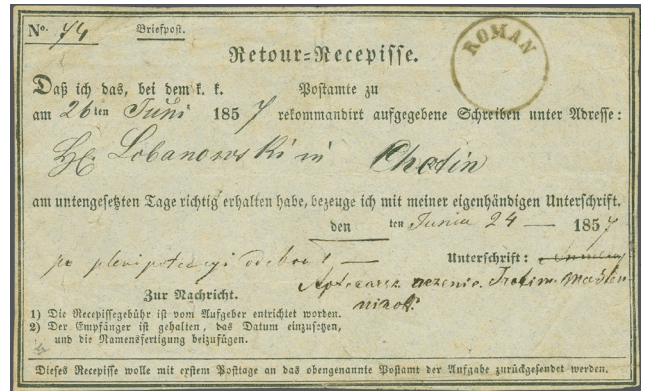 No. 74 Briefpost.
ROMAN
Retour=Recepisse.
Daß ich das, bei dem k. k. Postamte zu
am 26ten Juni 1857 rekommandirt aufgegebene Schreiben unter Adresse:
Lobanowski in Chotin
am untengesetzten Tage richtig erhalten habe, bezeuge ich mit meiner eigenhändigen Unterschrift.
den ten Junia 24 — 1857
po plenipotencyi odebrał — Unterschrift:
Aptekarz
Zur Nachricht.
1) Die Recepissegebühr ist vom Aufgeber entrichtet worden.
2) Der Empfänger ist gehalten, das Datum einzusetzen,
und die Namensfertigung beizufügen.
Dieses Recepisse wolle mit erstem Posttage an das obengenannte Postamt der Aufgabe zurückgesendet werden.